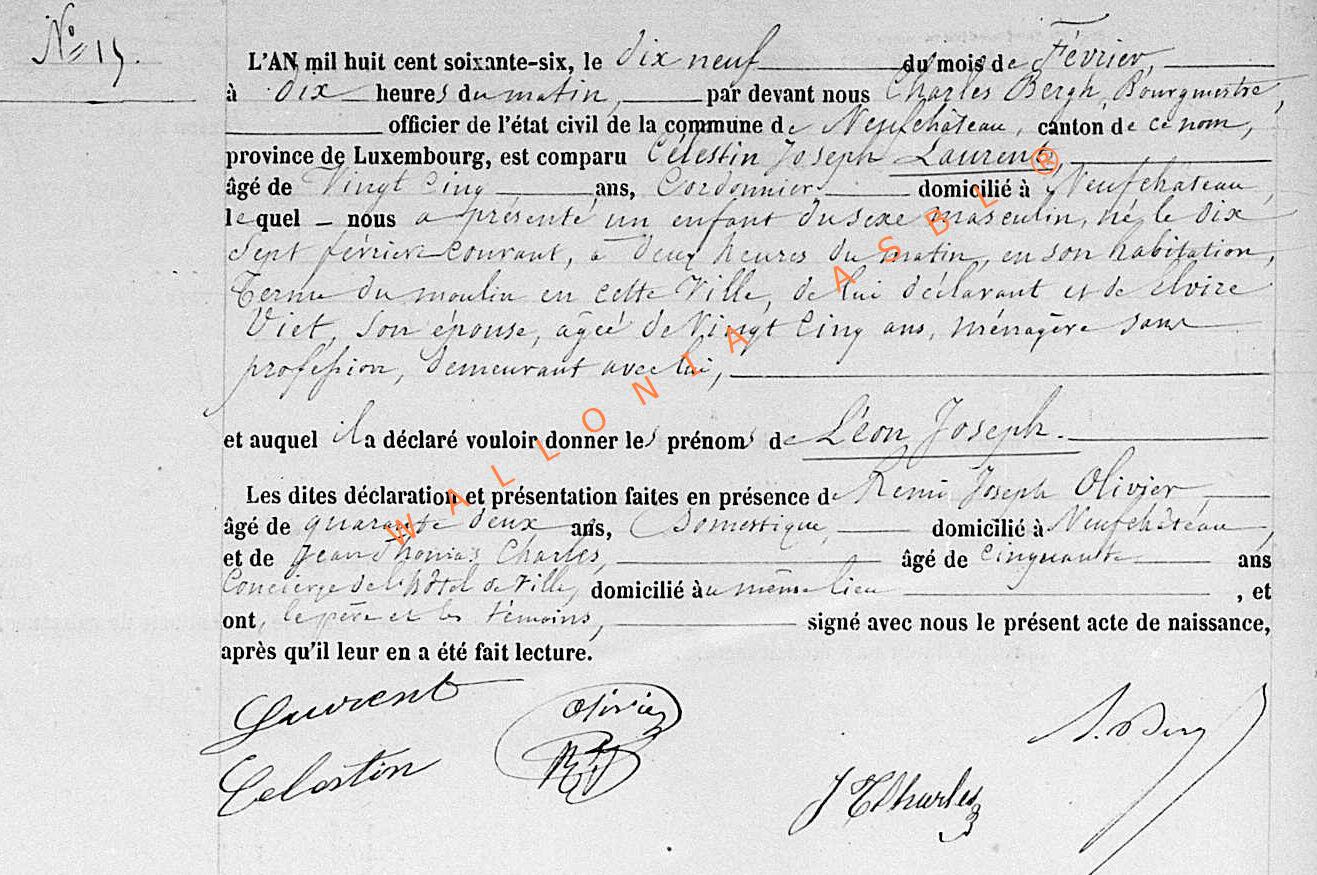 N° 15.
L'AN mil huit cent soixante-six, le dix neuf du mois de Février,
à dix heures du matin, par devant nous Charles Bergh, Bourgmestre,
officier de l'état civil de la commune de Neufchâteau, canton de ce nom,
province de Luxembourg, est comparu Célestin Joseph Laurent,
âgé de Vingt Cinq ans, Cordonnier domicilié à Neufchateau,
lequel nous a présenté un enfant du sexe masculin, né le dix
sept février courant, à deux heures du matin, en son habitation,
Terme du moulin en cette Ville, de lui déclarant et de Elvire
Viet, son épouse, âgée de Vingt Cinq ans, ménagère sans
profession, demeurant avec lui,
et auquel il a déclaré vouloir donner les prénoms de Léon Joseph.
Les dites déclaration et présentation faites en présence de Remi Joseph Olivier
âgé de quarante deux ans, Domestique, domicilié à Neufchâteau,
et de Jean Thomas Charles, âgé de cinquante ans
Concierge de l'hôtel de Ville, domicilié au même lieu , et
ont, le père et les témoins, signé avec nous le présent acte de naissance,
après qu'il leur en a été fait lecture.
Laurent Olivier
Celestin
J T Charles
WALLONIA ASBL ®